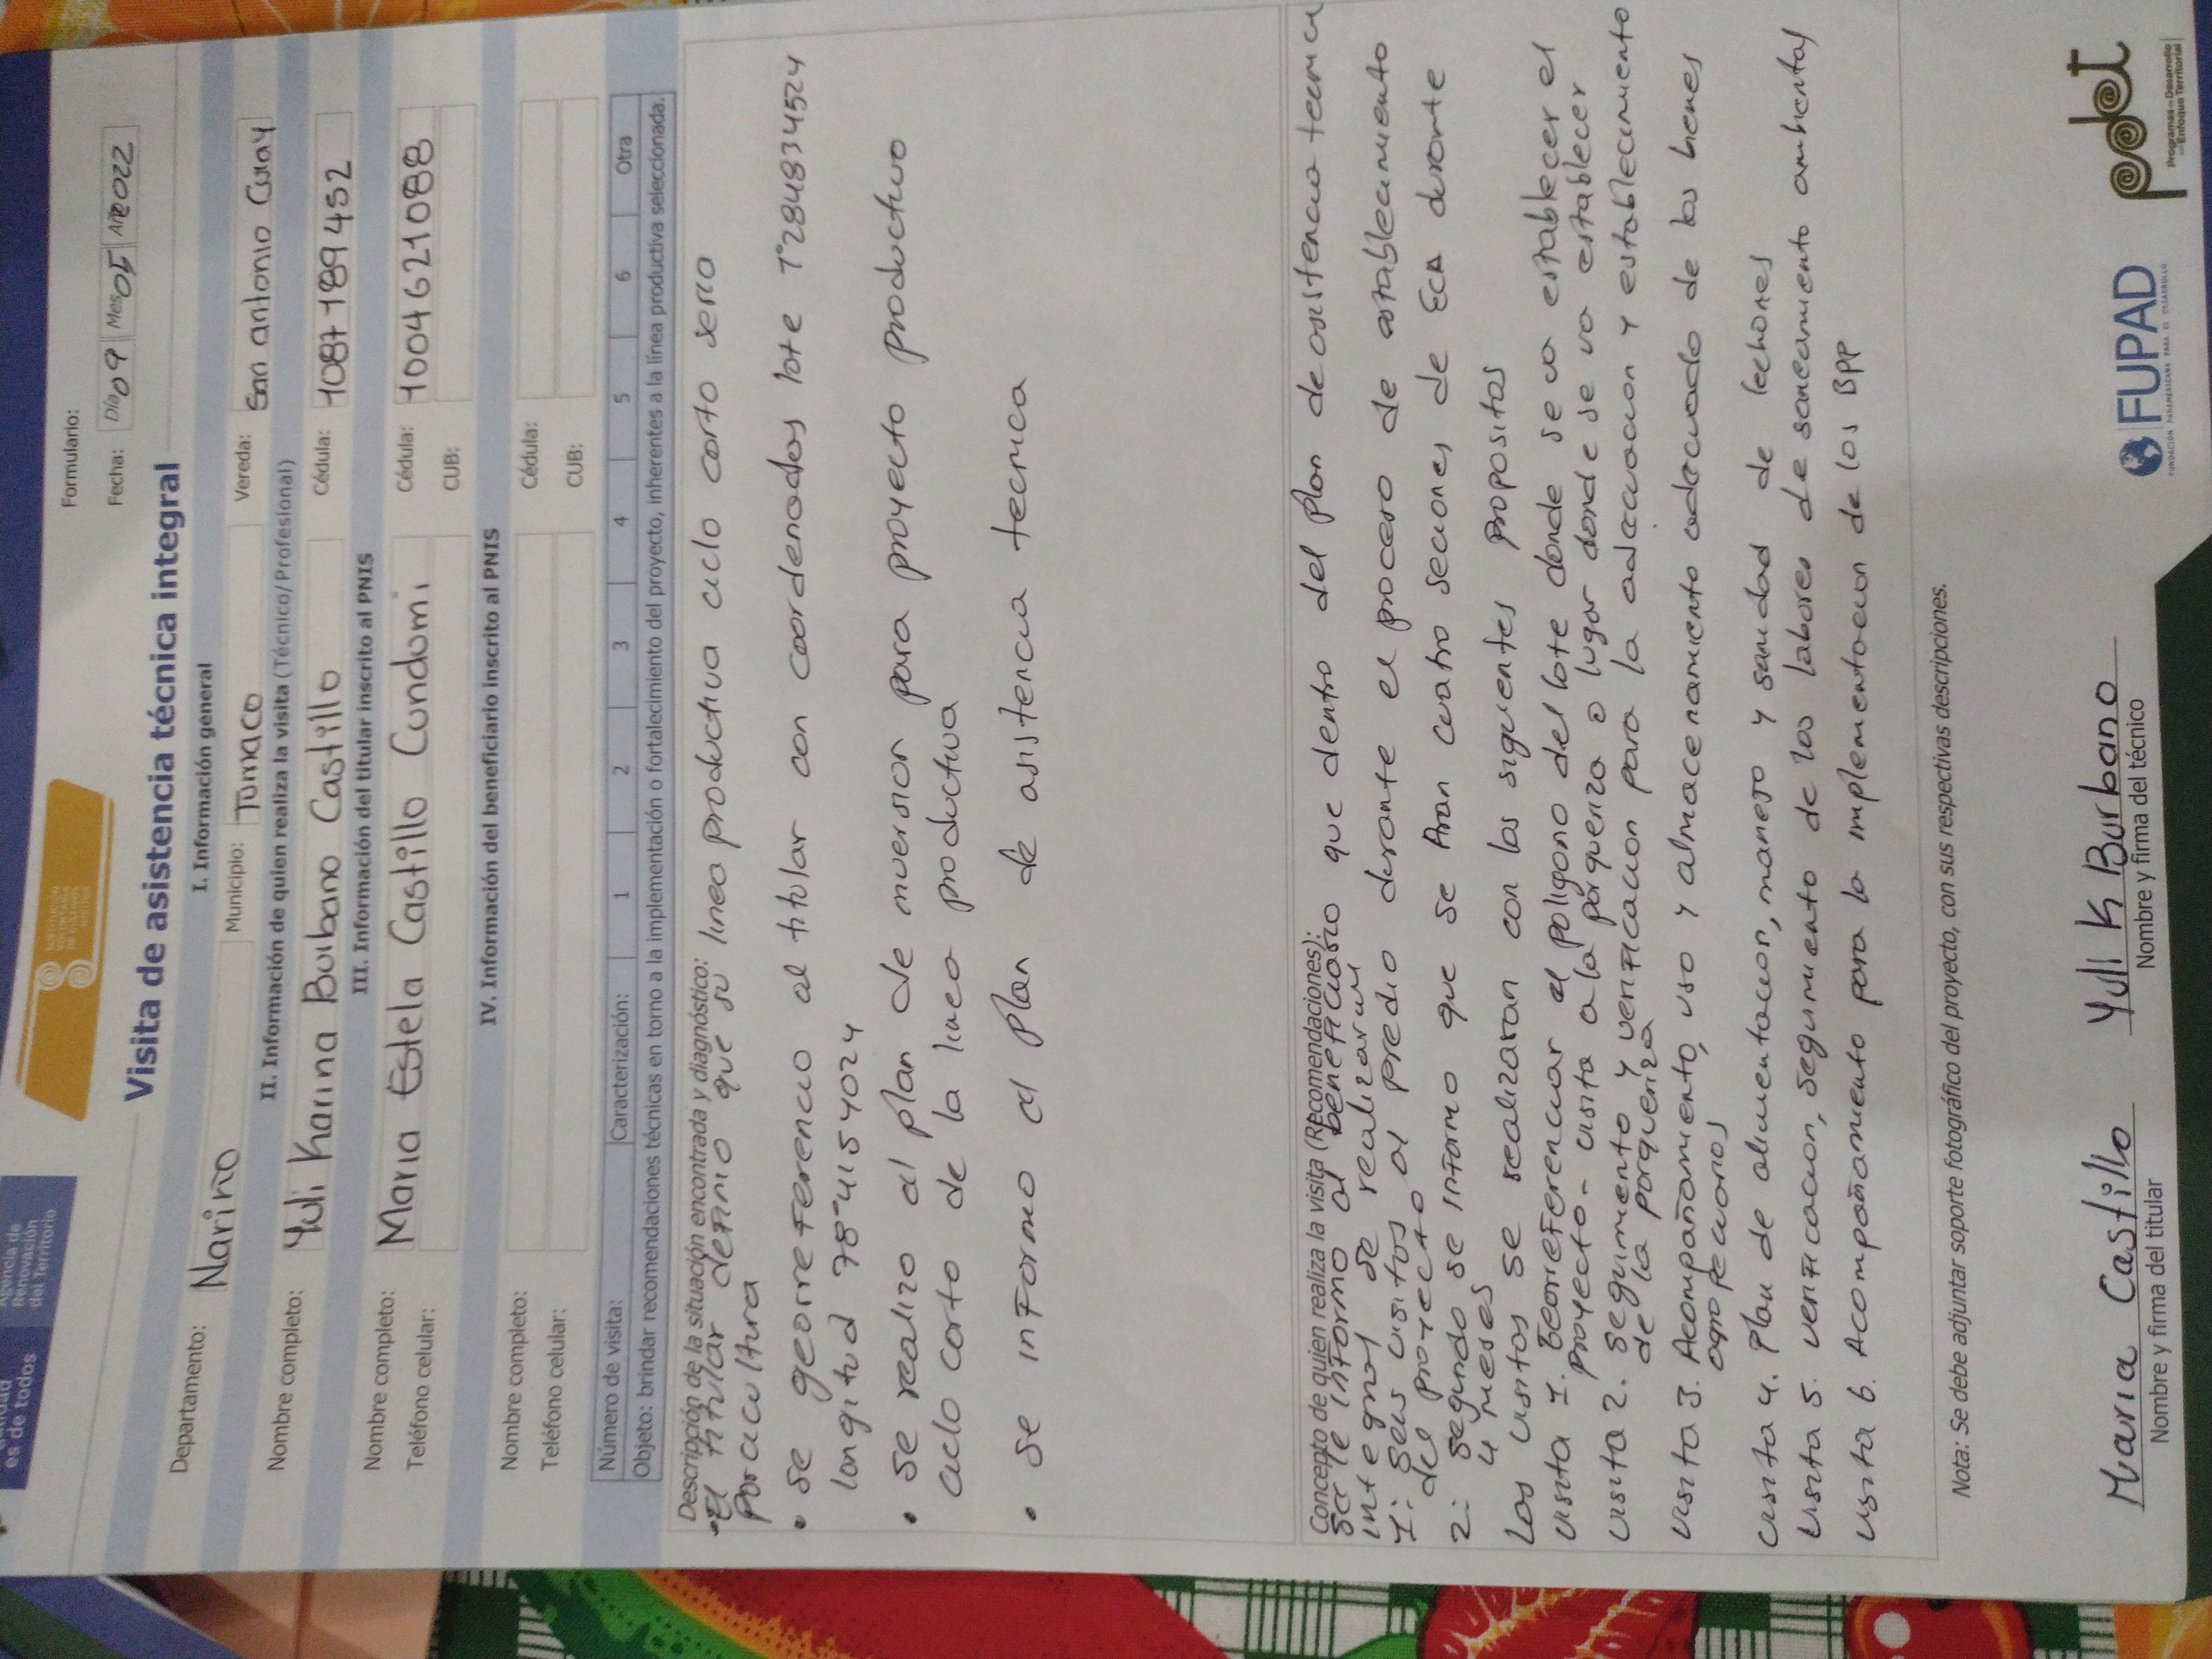 es de todos
Agencia de
Renovación
del Territorio
Formulario:
Fecha: Día 09 Mes 05 Año 2022
Visita de asistencia técnica integral
I. Información general
Departamento: Nariño Municipio: Tumaco Vereda: San antonio Curay
II. Información de quien realiza la visita (Técnico/Profesional)
Nombre completo: Yuli Karina Burbano Castillo Cédula: 1087189452
III. Información del titular inscrito al PNIS
Nombre completo: Maria Estela Castillo Cundumi Cédula: 1004621088
Teléfono celular: CUB:
IV. Información del beneficiario inscrito al PNIS
Nombre completo: Cédula:
Teléfono celular: CUB:
Número de visita: Caracterización: 1 2 3 4 5 6 Otra
Objeto: brindar recomendaciones técnicas en torno a la implementación o fortalecimiento del proyecto, inherentes a la línea productiva seleccionada.
Descripción de la situación encontrada y diagnóstico:
• El titular definio que su linea productiva ciclo corto seria
Poracicultura
• se georreferencio al titular con coordenadas late 1°2848374524
longitud 78°4115 74024
• se realizo el plan de inversion para proyecto productivo
ciclo corto de la linea productiva
• se informo el plan de asistencia tecnica
Concepto de quien realiza la visita (Recomendaciones):
se le informo al beneficiario que dentro del plan de asistencia tecnica
integral se realizarun
1: seis visitas al predio durante el proceso de establecimiento
del proyecto
2: segundo se informo que se Aran cuatro secciones de ECA durante
4 meses
Las visitas se realizaran con los siguientes propositos
visita 1. Georreferenciar el poligono del lote donde se va establecer el
proyecto - visita a la porqueriza o lugar donde se va establecer
visita 2. seguimiento y verificacion para la adecuacion y establecimiento
de la porqueriza
visita 3. Acompañamiento, uso y almacenamiento adecuado de los bienes
agropecuarios
visita 4. Plan de alimentacion, manejo y sanidad de lechones
visita 5. verificacion, seguimiento de los labores de saneamiento ambiental
visita 6. Acompañamiento para la implementacion de los BPP
Nota: Se debe adjuntar soporte fotográfico del proyecto, con sus respectivas descripciones.
Maria Castillo
Nombre y firma del titular
Yuli K Burbano
Nombre y firma del técnico
FUPAD
FUNDACIÓN PANAMERICANA PARA EL DESARROLLO
pdet
Programas de Desarrollo
con Enfoque Territorial